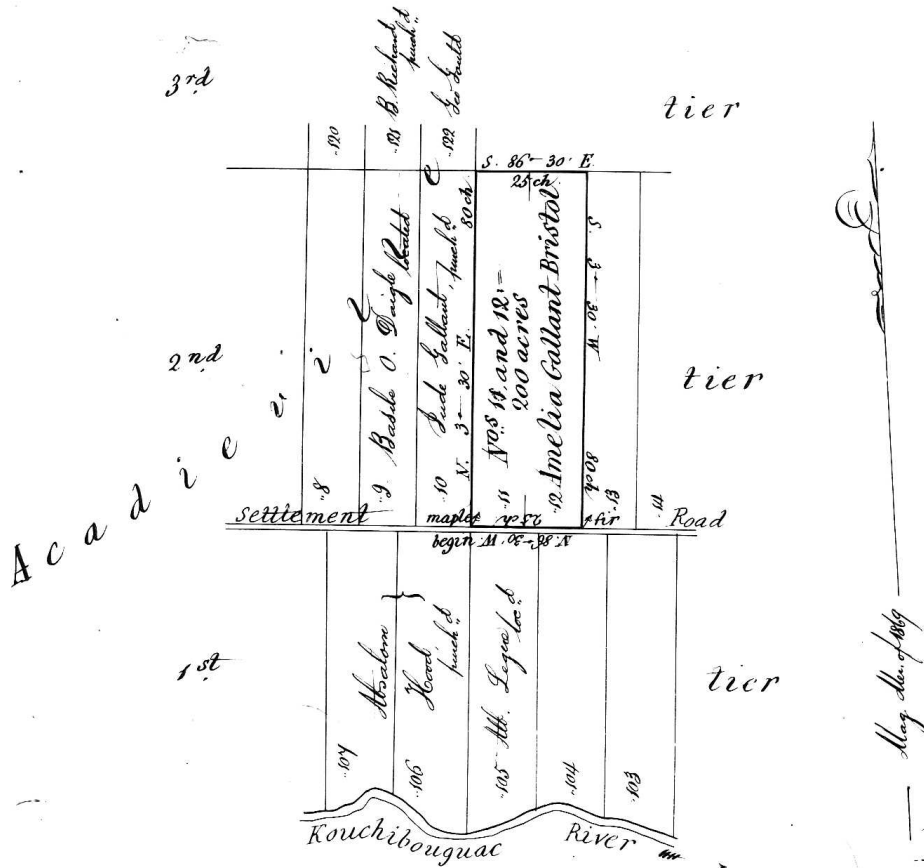 3rd tier
120
121 B. Richard purch'd
122 Geo Gould
S. 86-30' E.
25 ch.
2nd tier
Acadieville
8
9 Basile O. Daigle located
10 Jude Gallant, purch'd
N. 3-30' E. 80 ch.
11 Nos 11, and 12,=
200 acres
12 Amelia Gallant Bristol
S. 3-30' W
80 ch
13
14
Settlement Road
maple
25 ch
fir
begin
N. 86-30' W.
1st tier
107 Absalom
106 Hood purch'd
105 Loc'd
104
103
Kouchibouguac River
Mag. Mer. of 1869